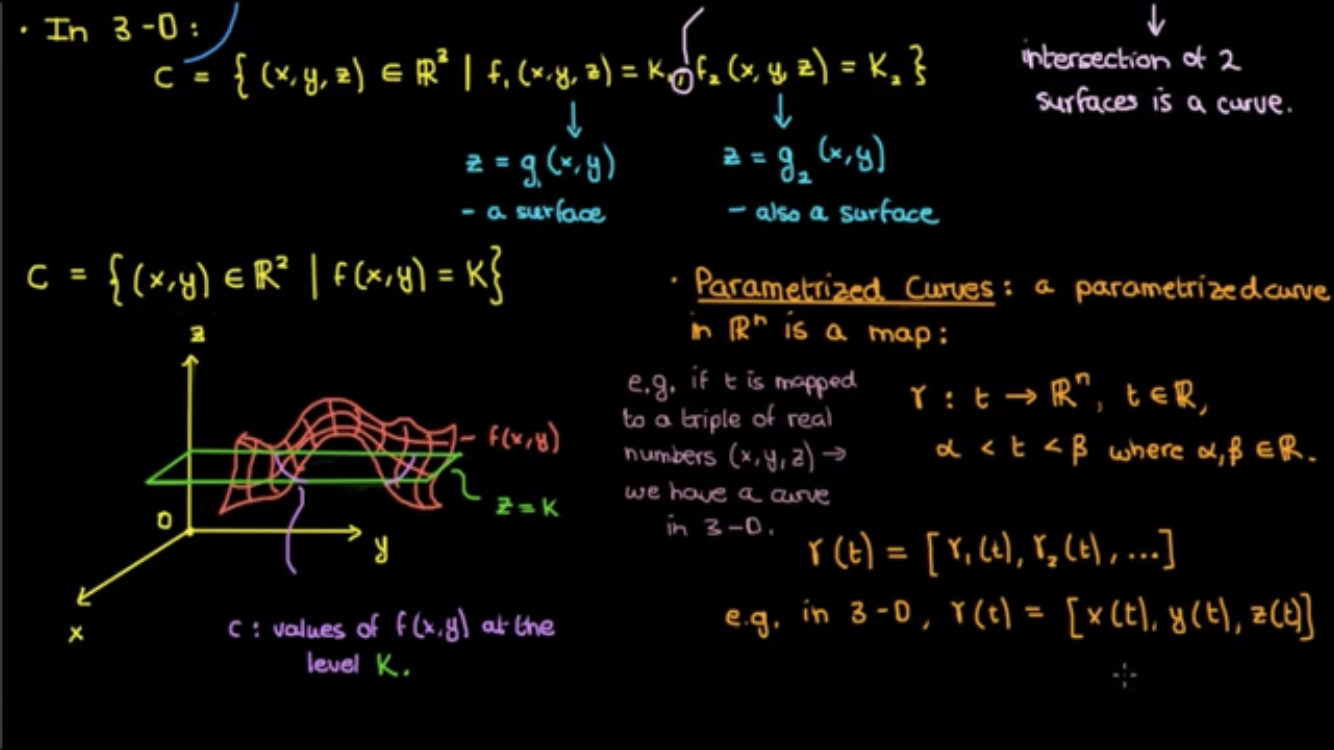 · In 3-D:
C = { (x,y,z) ∈ ℝ³ | f₁(x,y,z) = K₁, f₂(x,y,z) = K₂}
intersection of 2
surfaces is a curve.
z = g₁(x,y)
- a surface
z = g₂(x,y)
- also a surface
C = {(x,y) ∈ ℝ² | f(x,y) = K}
z
f(x,y)
z = K
O
y
x
C: values of f(x,y) at the
level K.
· Parametrized Curves: a parametrized curve
in ℝⁿ is a map:
e.g. if t is mapped
to a triple of real
numbers (x,y,z) →
we have a curve
in 3-D.
γ : t → ℝⁿ, t ∈ ℝ,
α < t < β where α,β ∈ ℝ.
γ(t) = [γ₁(t), γ₂(t), ...]
e.g. in 3-D, γ(t) = [x(t), y(t), z(t)]